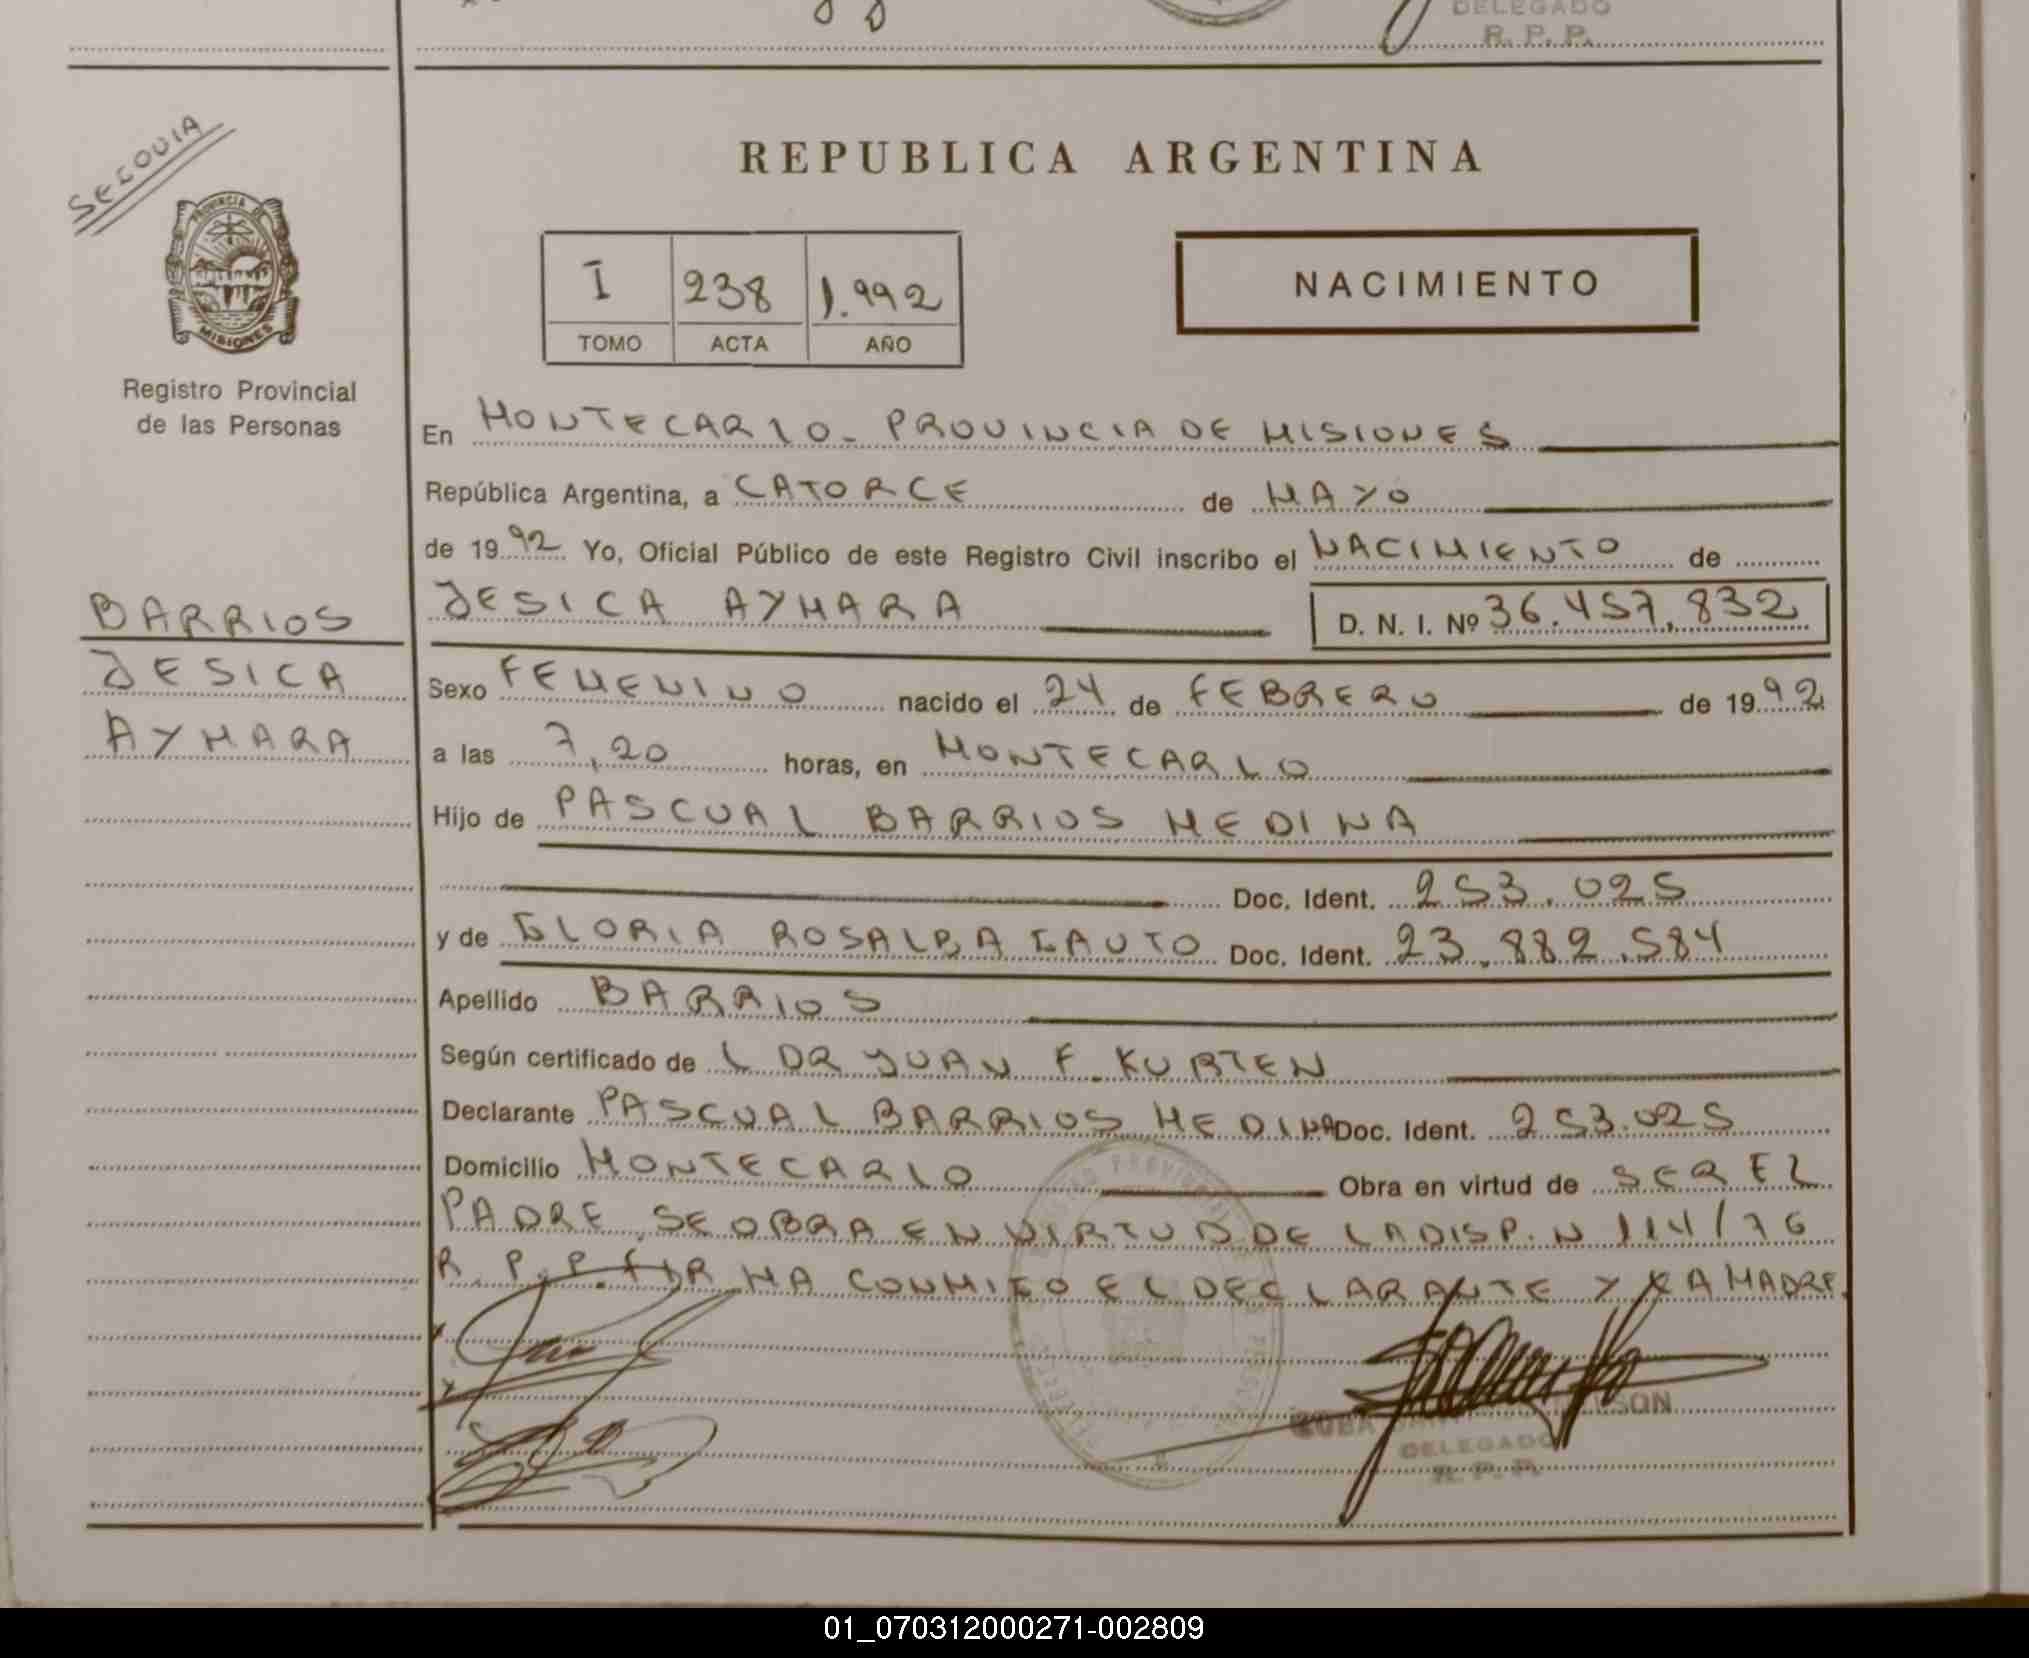 DELEGADO
R. P. P.
REPUBLICA ARGENTINA
PROVINCIA DE
MISIONES
Registro Provincial
de las Personas
I 238 1.992
TOMO ACTA AÑO
NACIMIENTO
En MONTECARLO - PROVINCIA DE MISIONES
República Argentina, a CATORCE de MAYO
de 1992 Yo, Oficial Público de este Registro Civil inscribo el NACIMIENTO de
JESICA AYMARA D. N. I. Nº 36.457.832
BARRIOS
JESICA
AYMARA
Sexo FEMENINO nacido el 24 de FEBRERO de 1992
a las 7,20 horas, en MONTECARLO
Hijo de PASCUAL BARRIOS MEDINA
Doc. Ident. 253.025
y de GLORIA ROSALBA GAUTO Doc. Ident. 23.882.584
Apellido BARRIOS
Según certificado de L DR JUAN F. KURTEN
Declarante PASCUAL BARRIOS MEDINA Doc. Ident. 253.025
Domicilio MONTECARLO Obra en virtud de SER EL
PADRE. SE OBRA EN VIRTUD DE LA DISP. N 114/76
R. P. P. FIRMA CONMIGO EL DECLARANTE Y LA MADRE.
DELEGADO
R. P. P.
01_070312000271-002809